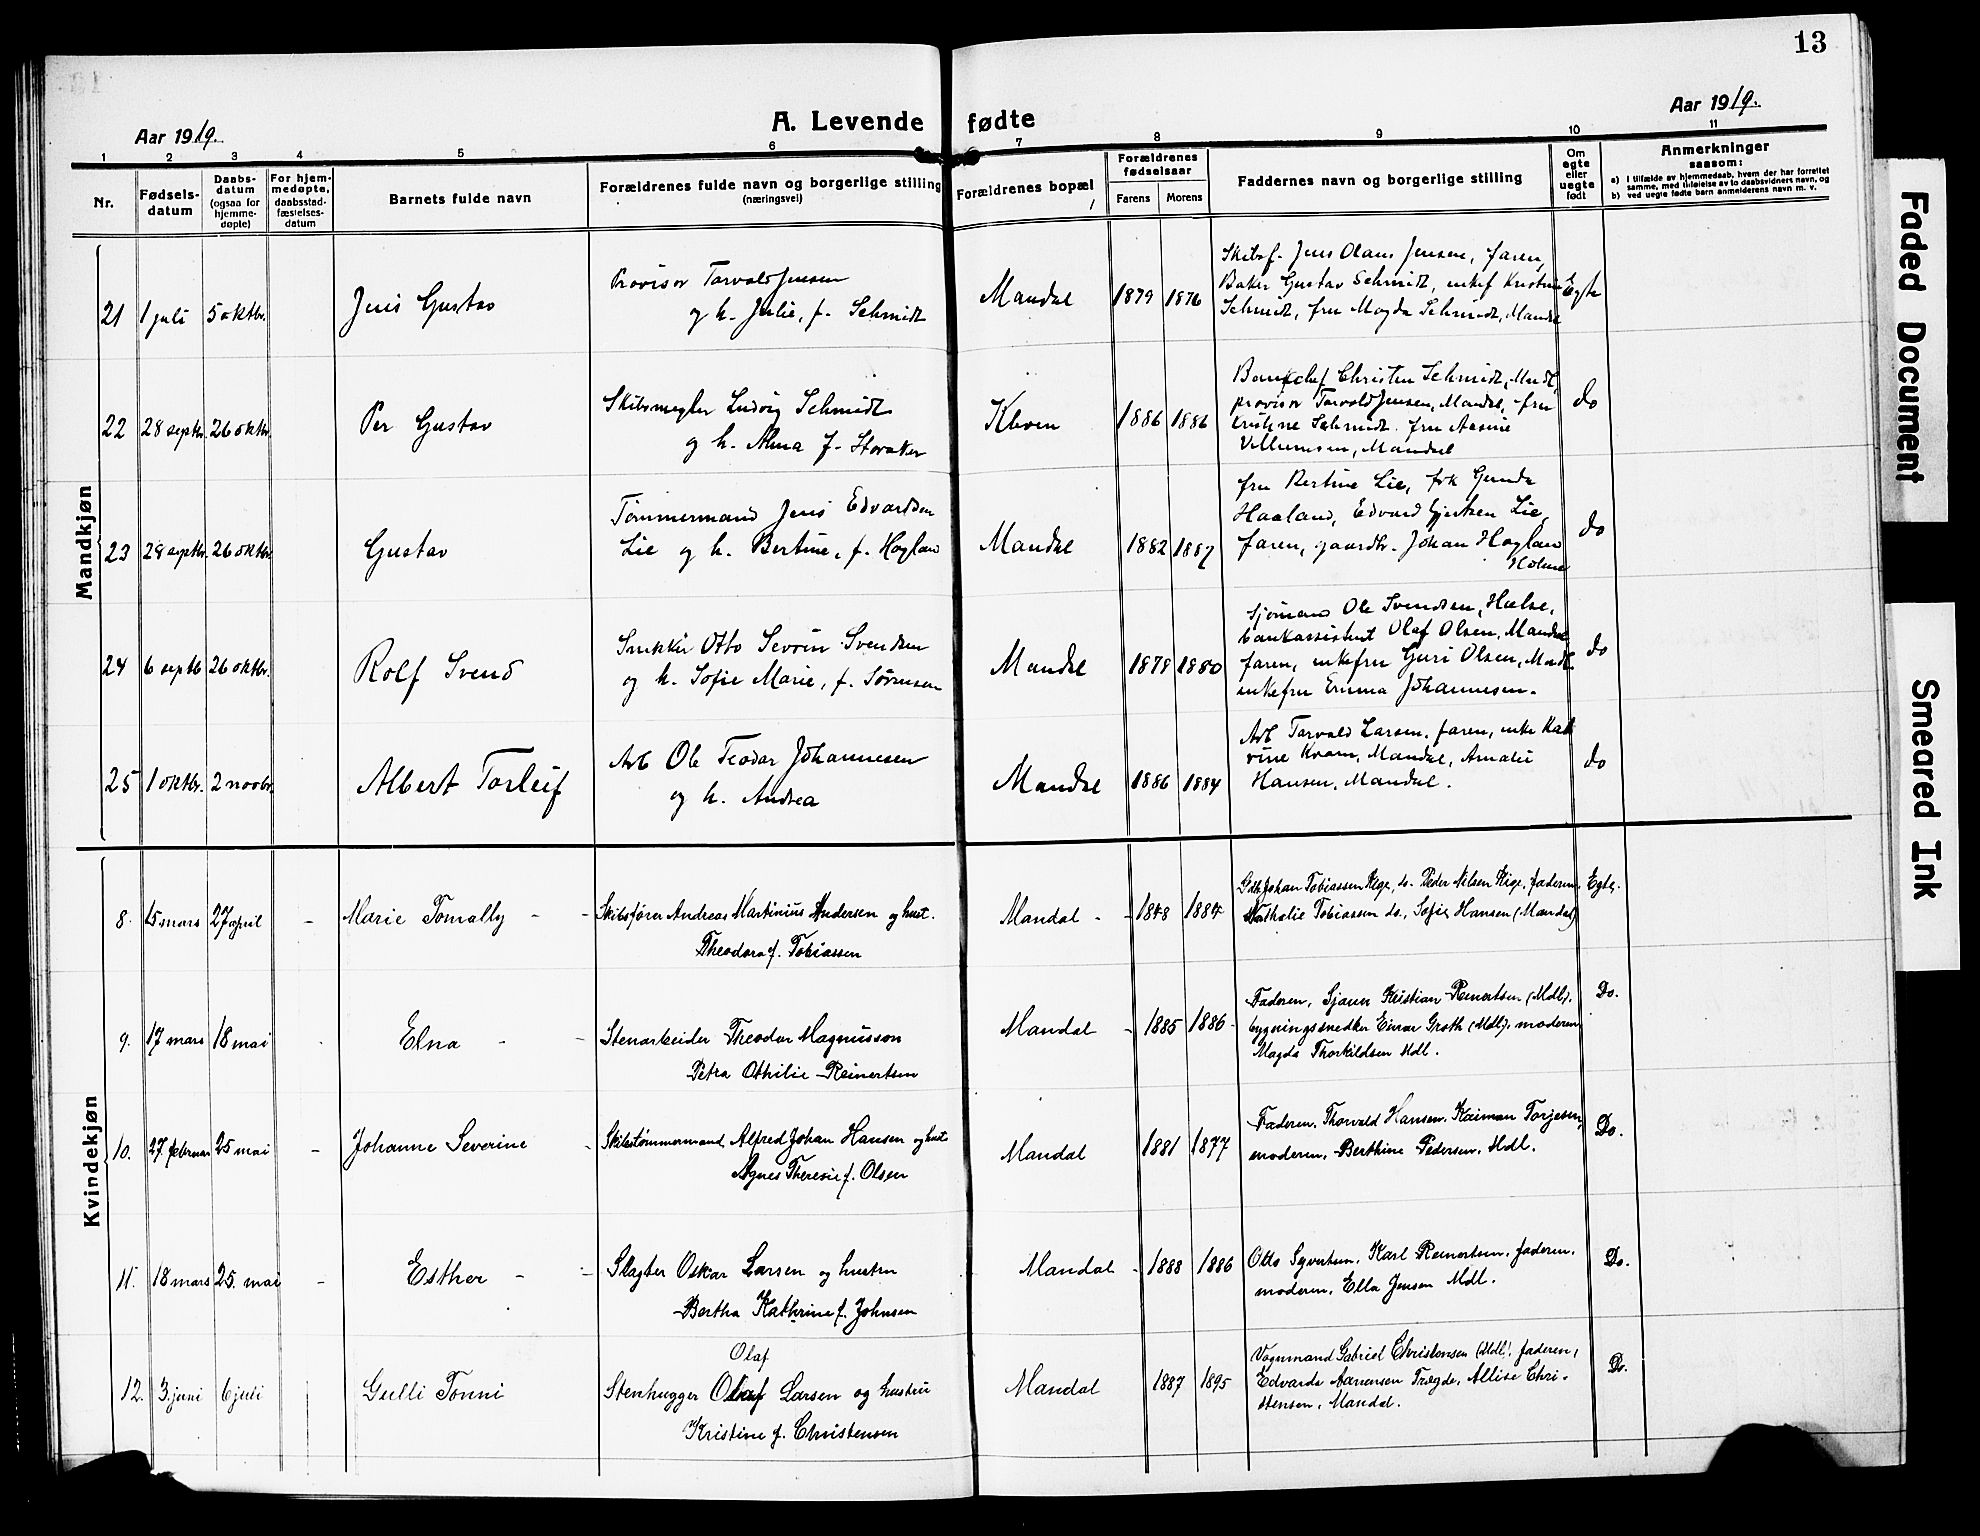 13
Aar 1919.
A. Levende fødte
Aar 1919.
1 2 3 4 5 6 7 8 9 10 11
Nr.
Fødsels-
datum
Daabs-
datum
(ogsaa for
hjemme-
døpte)
For hjem-
medøpte,
daabsstad-
fæstelses-
datum
Barnets fulde navn
Forældrenes fulde navn og borgerlige stilling
(næringsvei)
Forældrenes bopæl
Forældrenes
fødselsaar
Farens Morens
Faddernes navn og borgerlige stilling
Om
egte
eller
uegte
født
Anmerkninger
saasom:
a) I tilfælde av hjemmedaab, hvem der har forrettet
samme, med tilføielse av to daabsvidners navn, og
b) ved uegte fødte barn anmelderens navn m. v.
Mandkjøn
21 1 juli 5 oktbr. Jens Gustav
Provisor Torvald Jensen
og h. Julie, f. Schmidt
Mandal 1879 1876
Skibsf. Jens Olaus Jensen, faren,
Baker Gustav Schmidt, enkef Kristine
Schmidt, fru Magda Schmidt, Mandal
Egte
22 28 septbr. 26 oktbr. Per Gustav
Skibsmegler Ludvig Schmidt
og h. Alma f. Storaker
Kleven 1886 1886
Bankchef Christen Schmidt, Mndl,
provisor Torvald Jensen, Mandal, fru
Kristine Schmidt. fru Aasine
Villumsen, Mandal
do
23 28 septbr. 26 oktbr. Gustav
Tømmermand Jens Edvardsen
Lie og h. Bertine, f. Høyland
Mandal 1882 1887
fru Bertine Lie, frk Gunda
Haaland, Edvard Gjertsen Lie,
faren, gaardbr. Johan Høyland
Holme
do
24 6 septb 26 oktbr. Rolf Svend
Snekker Otto Severin Svendsen
og h. Sofie Marie, f. Sørensen
Mandal 1878 1880
Sjømand Ole Svendsen, Halse,
bankassistent Olaf Olsen, Mandal
faren, enkefru Guri Olsen, Mndl.
enkefru Emma Johannesen.
do
25 1 oktbr. 2 novbr. Albert Torleif
Arb Ole Teodor Johannesen
og h. Andrea
Mandal 1886 1884
Arb Torvald Larsen, faren, enke Kat
rine Kvam, Mandal, Amalie
Hansen, Mandal.
do
Kvindekjøn
8. 15 mars 27 april - Marie Tomally - -
Skibsfører Andreas Martinius Andersen og hust.
Theodora f. Tobiassen
Mandal - - 1884
Gdb Johan Tobiassen Kige, do. Peder Nilsen Kige, faderen,
Nathalie Tobiassen do., Sofie Hansen (Mandal)
Egte.
9. 17 mars 18 mai Elna - -
Stenarbeider Theodor Magnusson
Petra Othilie Reinertsen
Mandal - 1885 1886
Faderen, Sjøm Kristian Reinertsen (Mdl),
bygningssnedker Einar Groth (Mdl), moderen,
Magda Thorkildsen Mdl.
Do.
10. 27. februar 25 mai - Johanne Severine -
Skibstømmermand Alfred Johan Hansen og hust
Agnes Theresie f. Olsen
Mandal 1881 1877
Faderen, Thorvald Hansen, Kaiman Torjesen,
moderen, Berthine Pedersen, Mdl.
Do.
11. 18 mars 25. mai - Esther - -
Slagter Oskar Larsen og hustru
Bertha Kathrine f. Johnsen
Mandal - 1888 1886
Otto Syvertsen, Karl Reinertsen, faderen,
moderen, Ella Jensen Mdl.
Do.
12. 3 juni 6 juli Gulli Tonni
Olaf
Stenhugger Olaf Larsen og hustru
Kristine f. Christensen
Mandal 1887 1895
Vognmand Gabriel Christensen (Mdl), faderen,
Edvarda Aanensen Trægde, Allise Chri-
stensen, Mandal.
Do.
Faded Document
Smeared Ink